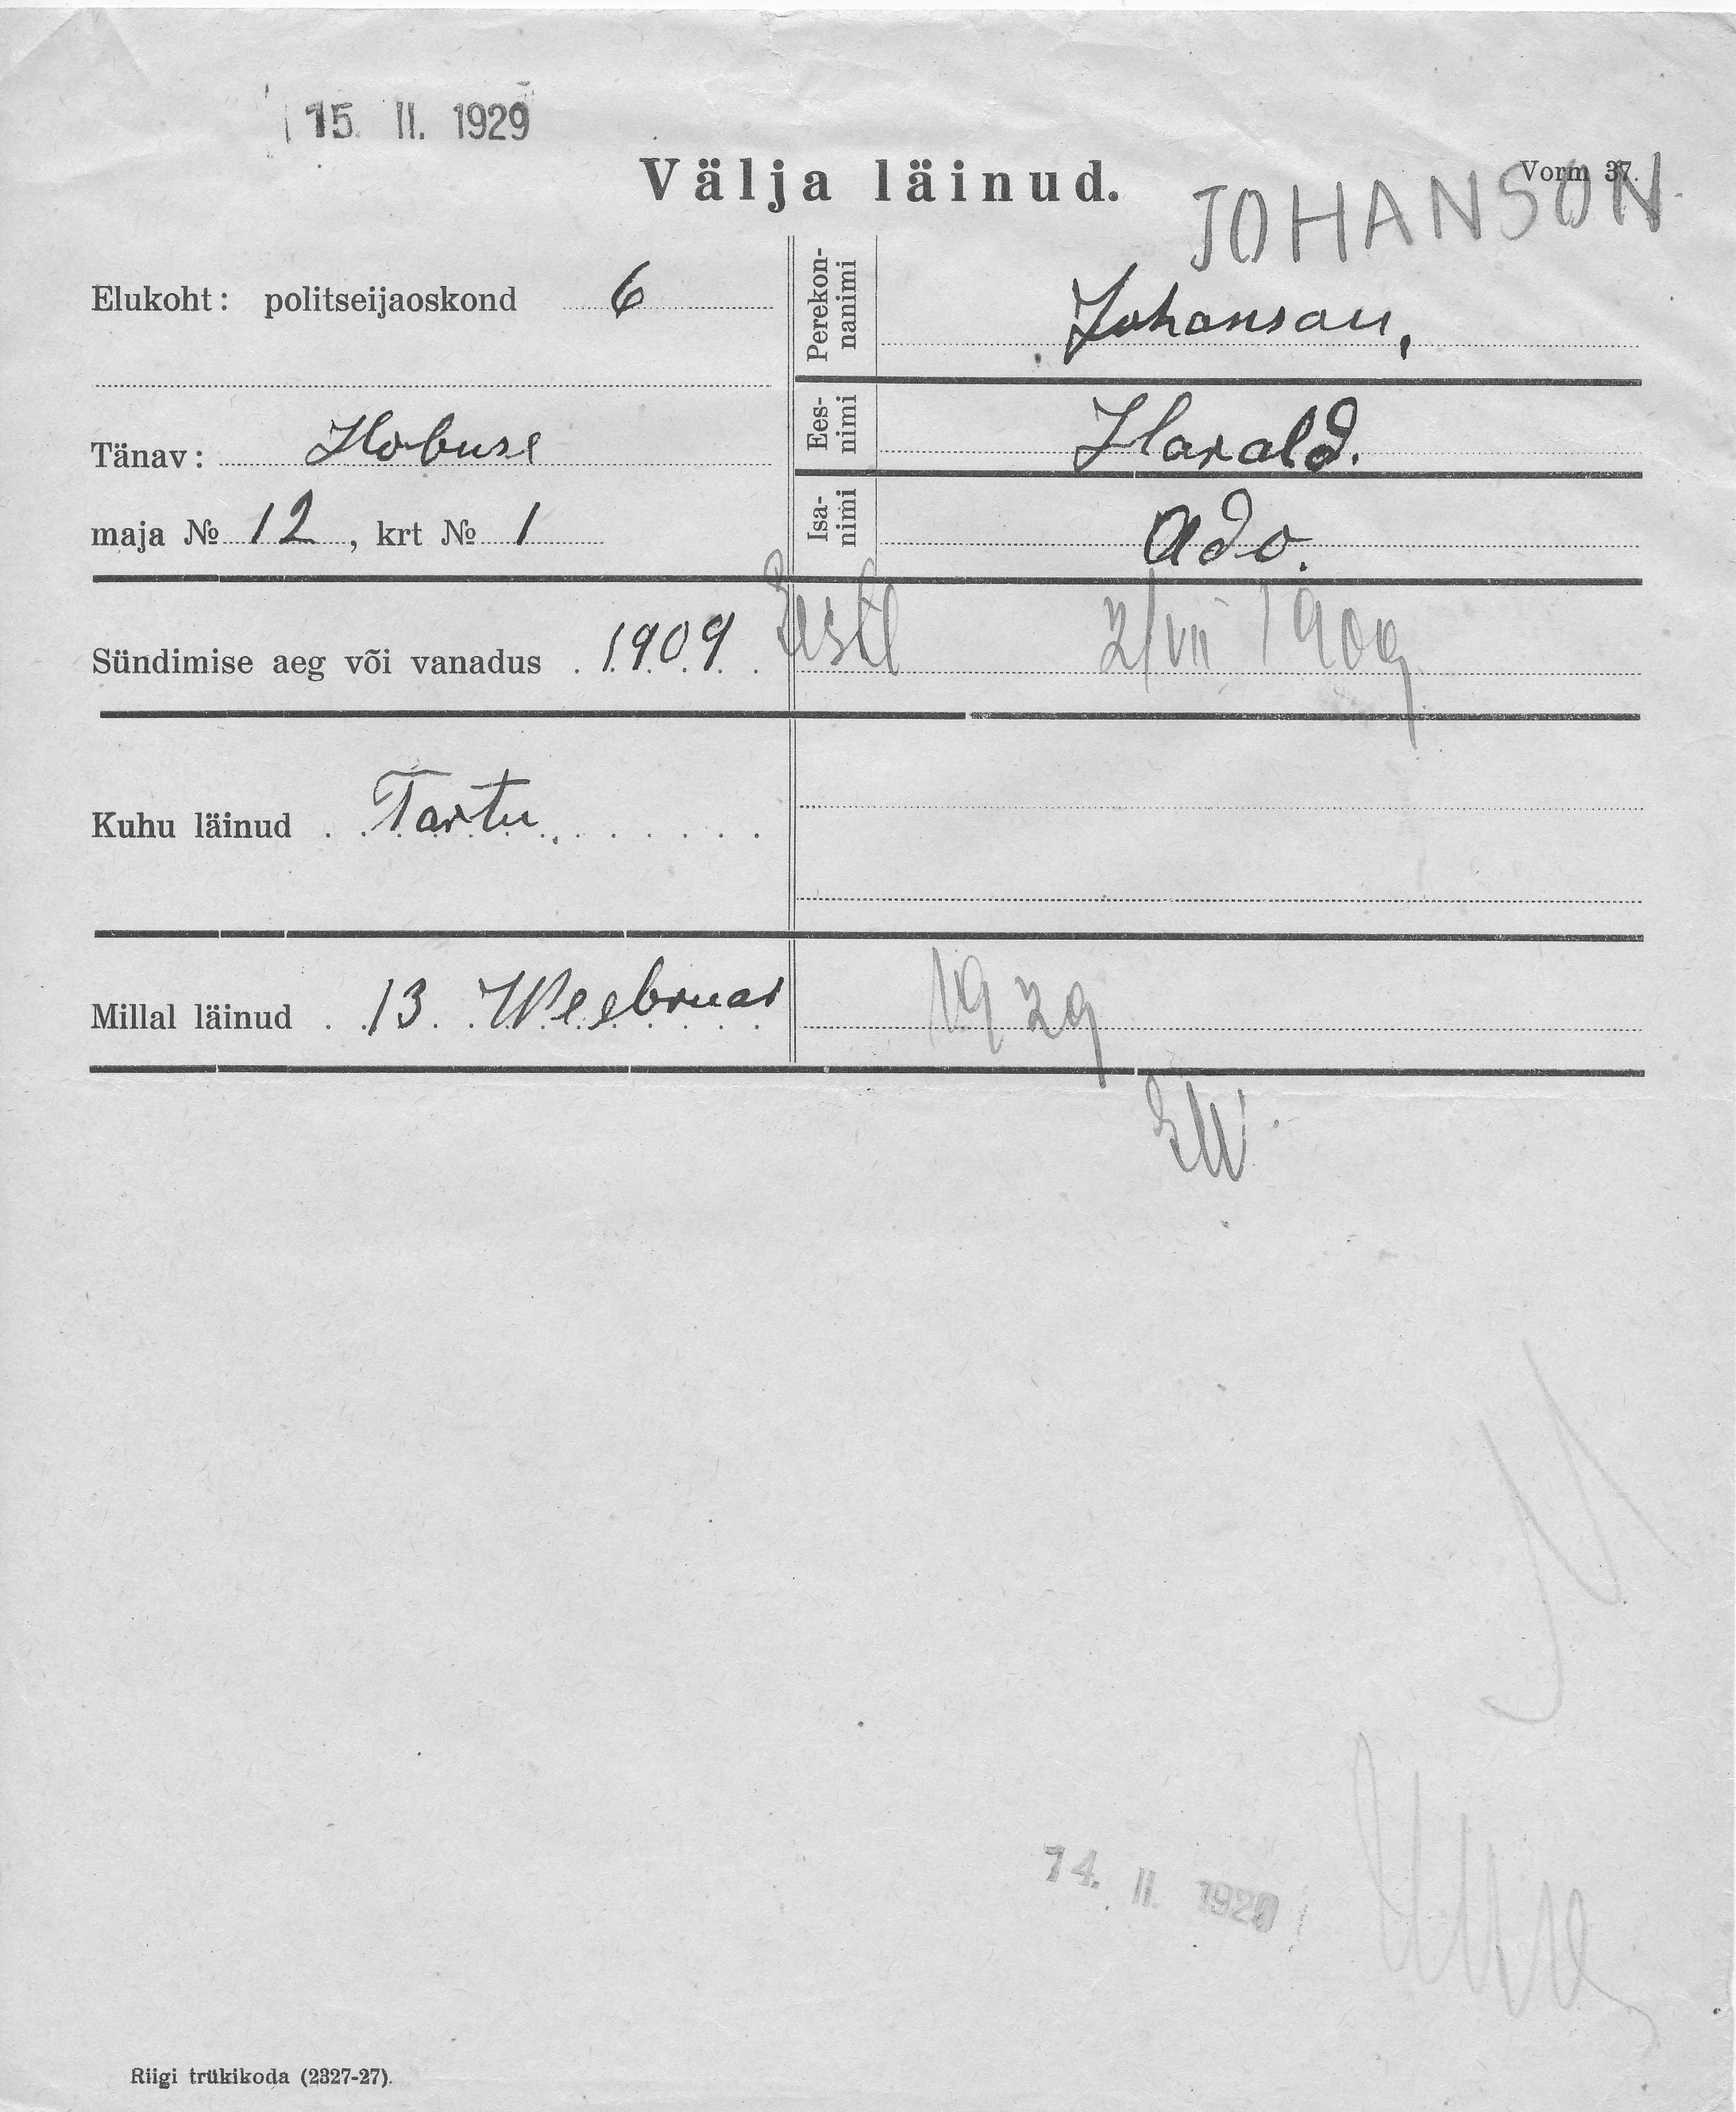 15. II. 1929
Välja läinud.
Vorm 37.
JOHANSON
Elukoht: politseijaoskond 6
Perekon-
nanimi
Johanson,
Tänav: Hobuse
Ees-
nimi
Harald.
maja № 12, krt № 1
Isa-
nimi
Ado.
Sündimise aeg või vanadus 1909 Eestl 2/VII 1909
Kuhu läinud Tartu.
Millal läinud 13. Weebruar 1929
EW
14. II. 1929
Riigi trükikoda (2327-27).